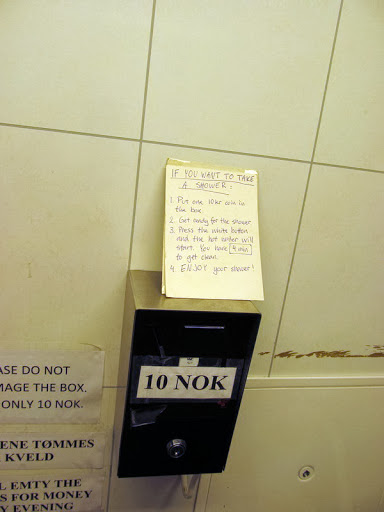 IF YOU WANT TO TAKE
A SHOWER:
1. Put one 10 kr coin in
the box.
2. Get ready for the shower
3. Press the white button
and the hot water will
start. You have 4 min
to get clean.
4. ENJOY your shower!
10 NOK
ASE DO NOT
MAGE THE BOX.
ONLY 10 NOK.
ENE TØMMES
KVELD
L EMTY THE
S FOR MONEY
Y EVENING